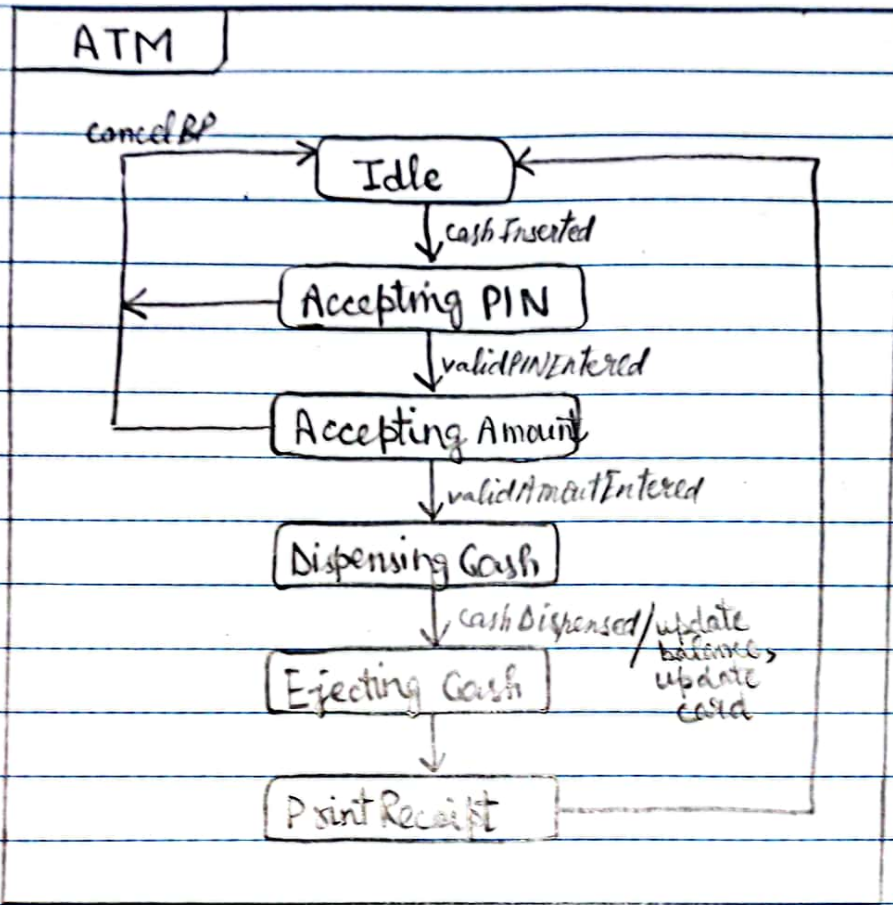 ATM
cancelBP
Idle
cashInserted
Accepting PIN
validPINEntered
Accepting Amount
validAmoutEntered
Dispensing Cash
cashDispensed/update
balance,
update
card
Ejecting Cash
Print Receipt